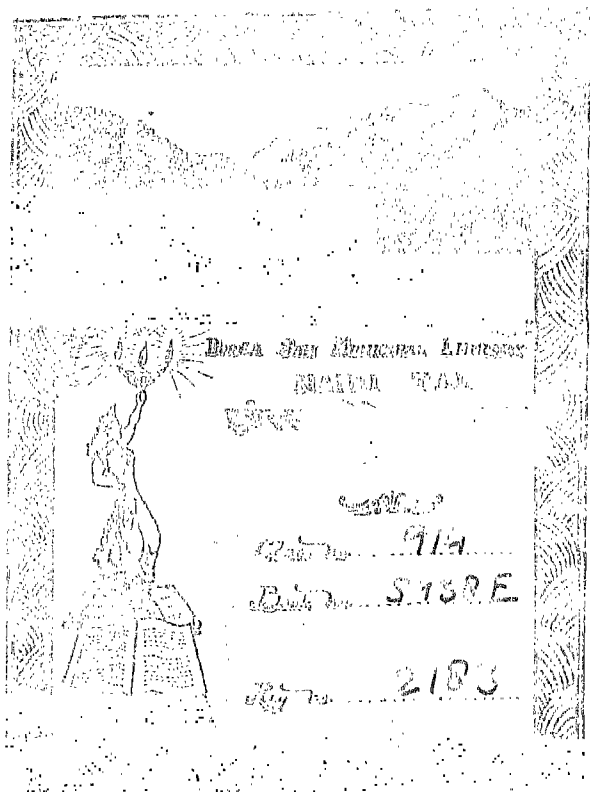 Durga Sah Municipal Library
NAINI TAL
Class no. 914
Book no. S138E
Reg no. 2183